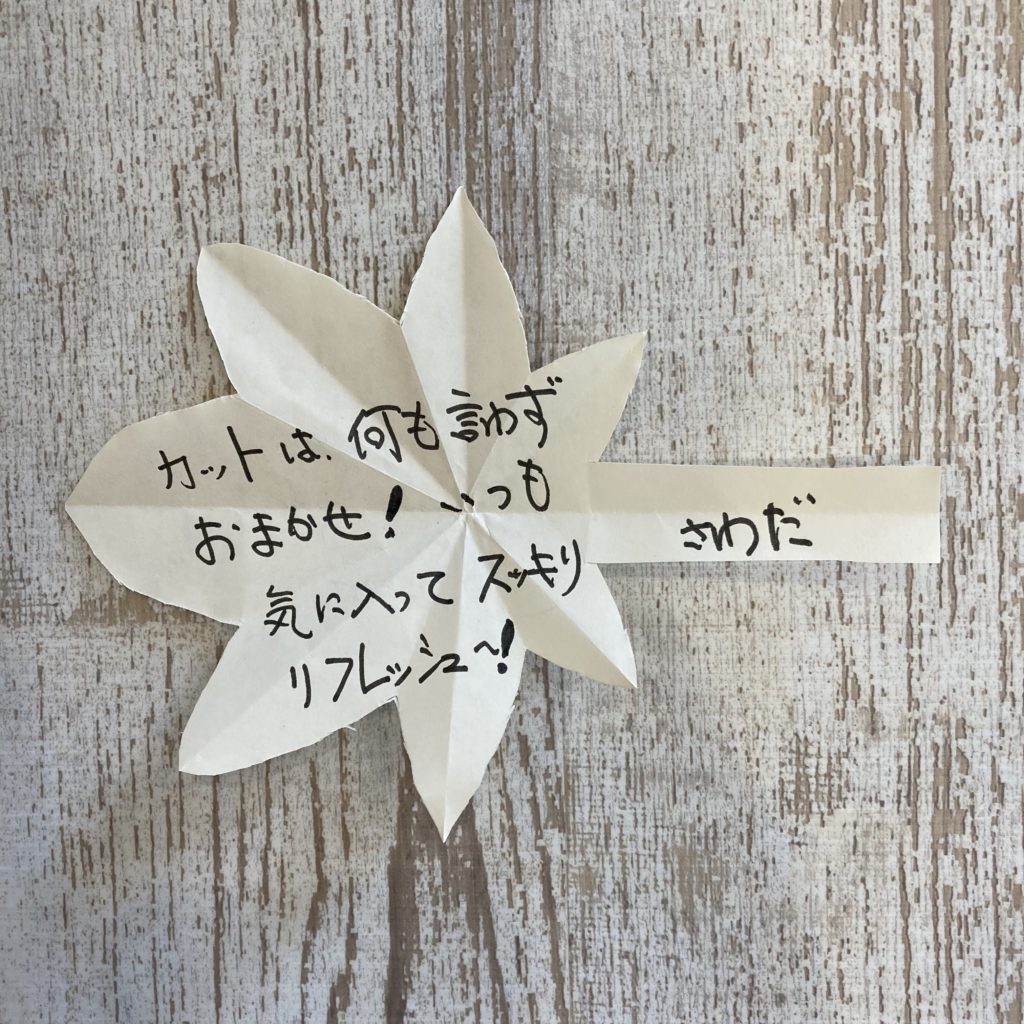 カットは、何も言わず
おまかせ！いつも
気に入ってスッキリ
リフレッシュ〜！
さわだ